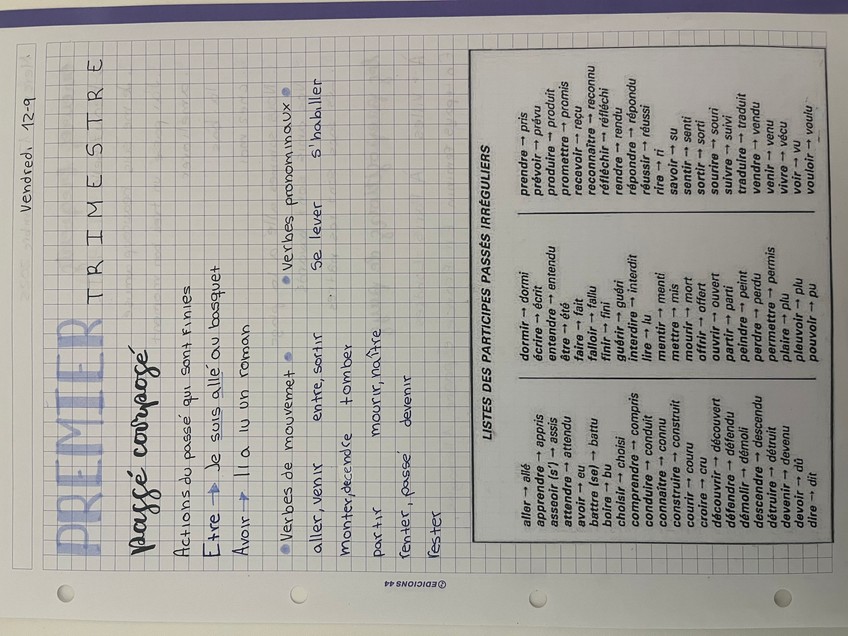 Vendredi 12-9
PREMIER
TRIMESTRE
passé composé
Actions du passé qui sont finies
Etre → Je suis allé au basquet
Avoir → Il a lu un roman
• Verbes de mouvemet •
aller, venir entre, sortir
monter, decendre tomber
partir mourir, naître
renter, passe devenir
rester
• Verbes pronominaux •
Se lever s'habiller
LISTES DES PARTICIPES PASSÉS IRRÉGULIERS
aller → allé
apprendre → appris
asseoir (s') → assis
attendre → attendu
avoir → eu
battre (se) → battu
boire → bu
choisir → choisi
comprendre → compris
conduire → conduit
connaître → connu
construire → construit
courir → couru
croire → cru
découvrir → découvert
défendre → défendu
démolir → démoli
descendre → descendu
détruire → détruit
devenir → devenu
devoir → dû
dire → dit
dormir → dormi
écrire → écrit
entendre → entendu
être → été
faire → fait
falloir → fallu
finir → fini
guérir → guéri
interdire → interdit
lire → lu
mentir → menti
mettre → mis
mourir → mort
offrir → offert
ouvrir → ouvert
partir → parti
peindre → peint
perdre → perdu
permettre → permis
plaire → plu
pleuvoir → plu
pouvoir → pu
prendre → pris
prévoir → prévu
produire → produit
promettre → promis
recevoir → reçu
reconnaître → reconnu
réfléchir → réfléchi
rendre → rendu
répondre → répondu
réussir → réussi
rire → ri
savoir → su
sentir → senti
sortir → sorti
sourire → souri
suivre → suivi
traduire → traduit
vendre → vendu
venir → venu
vivre → vécu
voir → vu
vouloir → voulu
EDICIONS 44